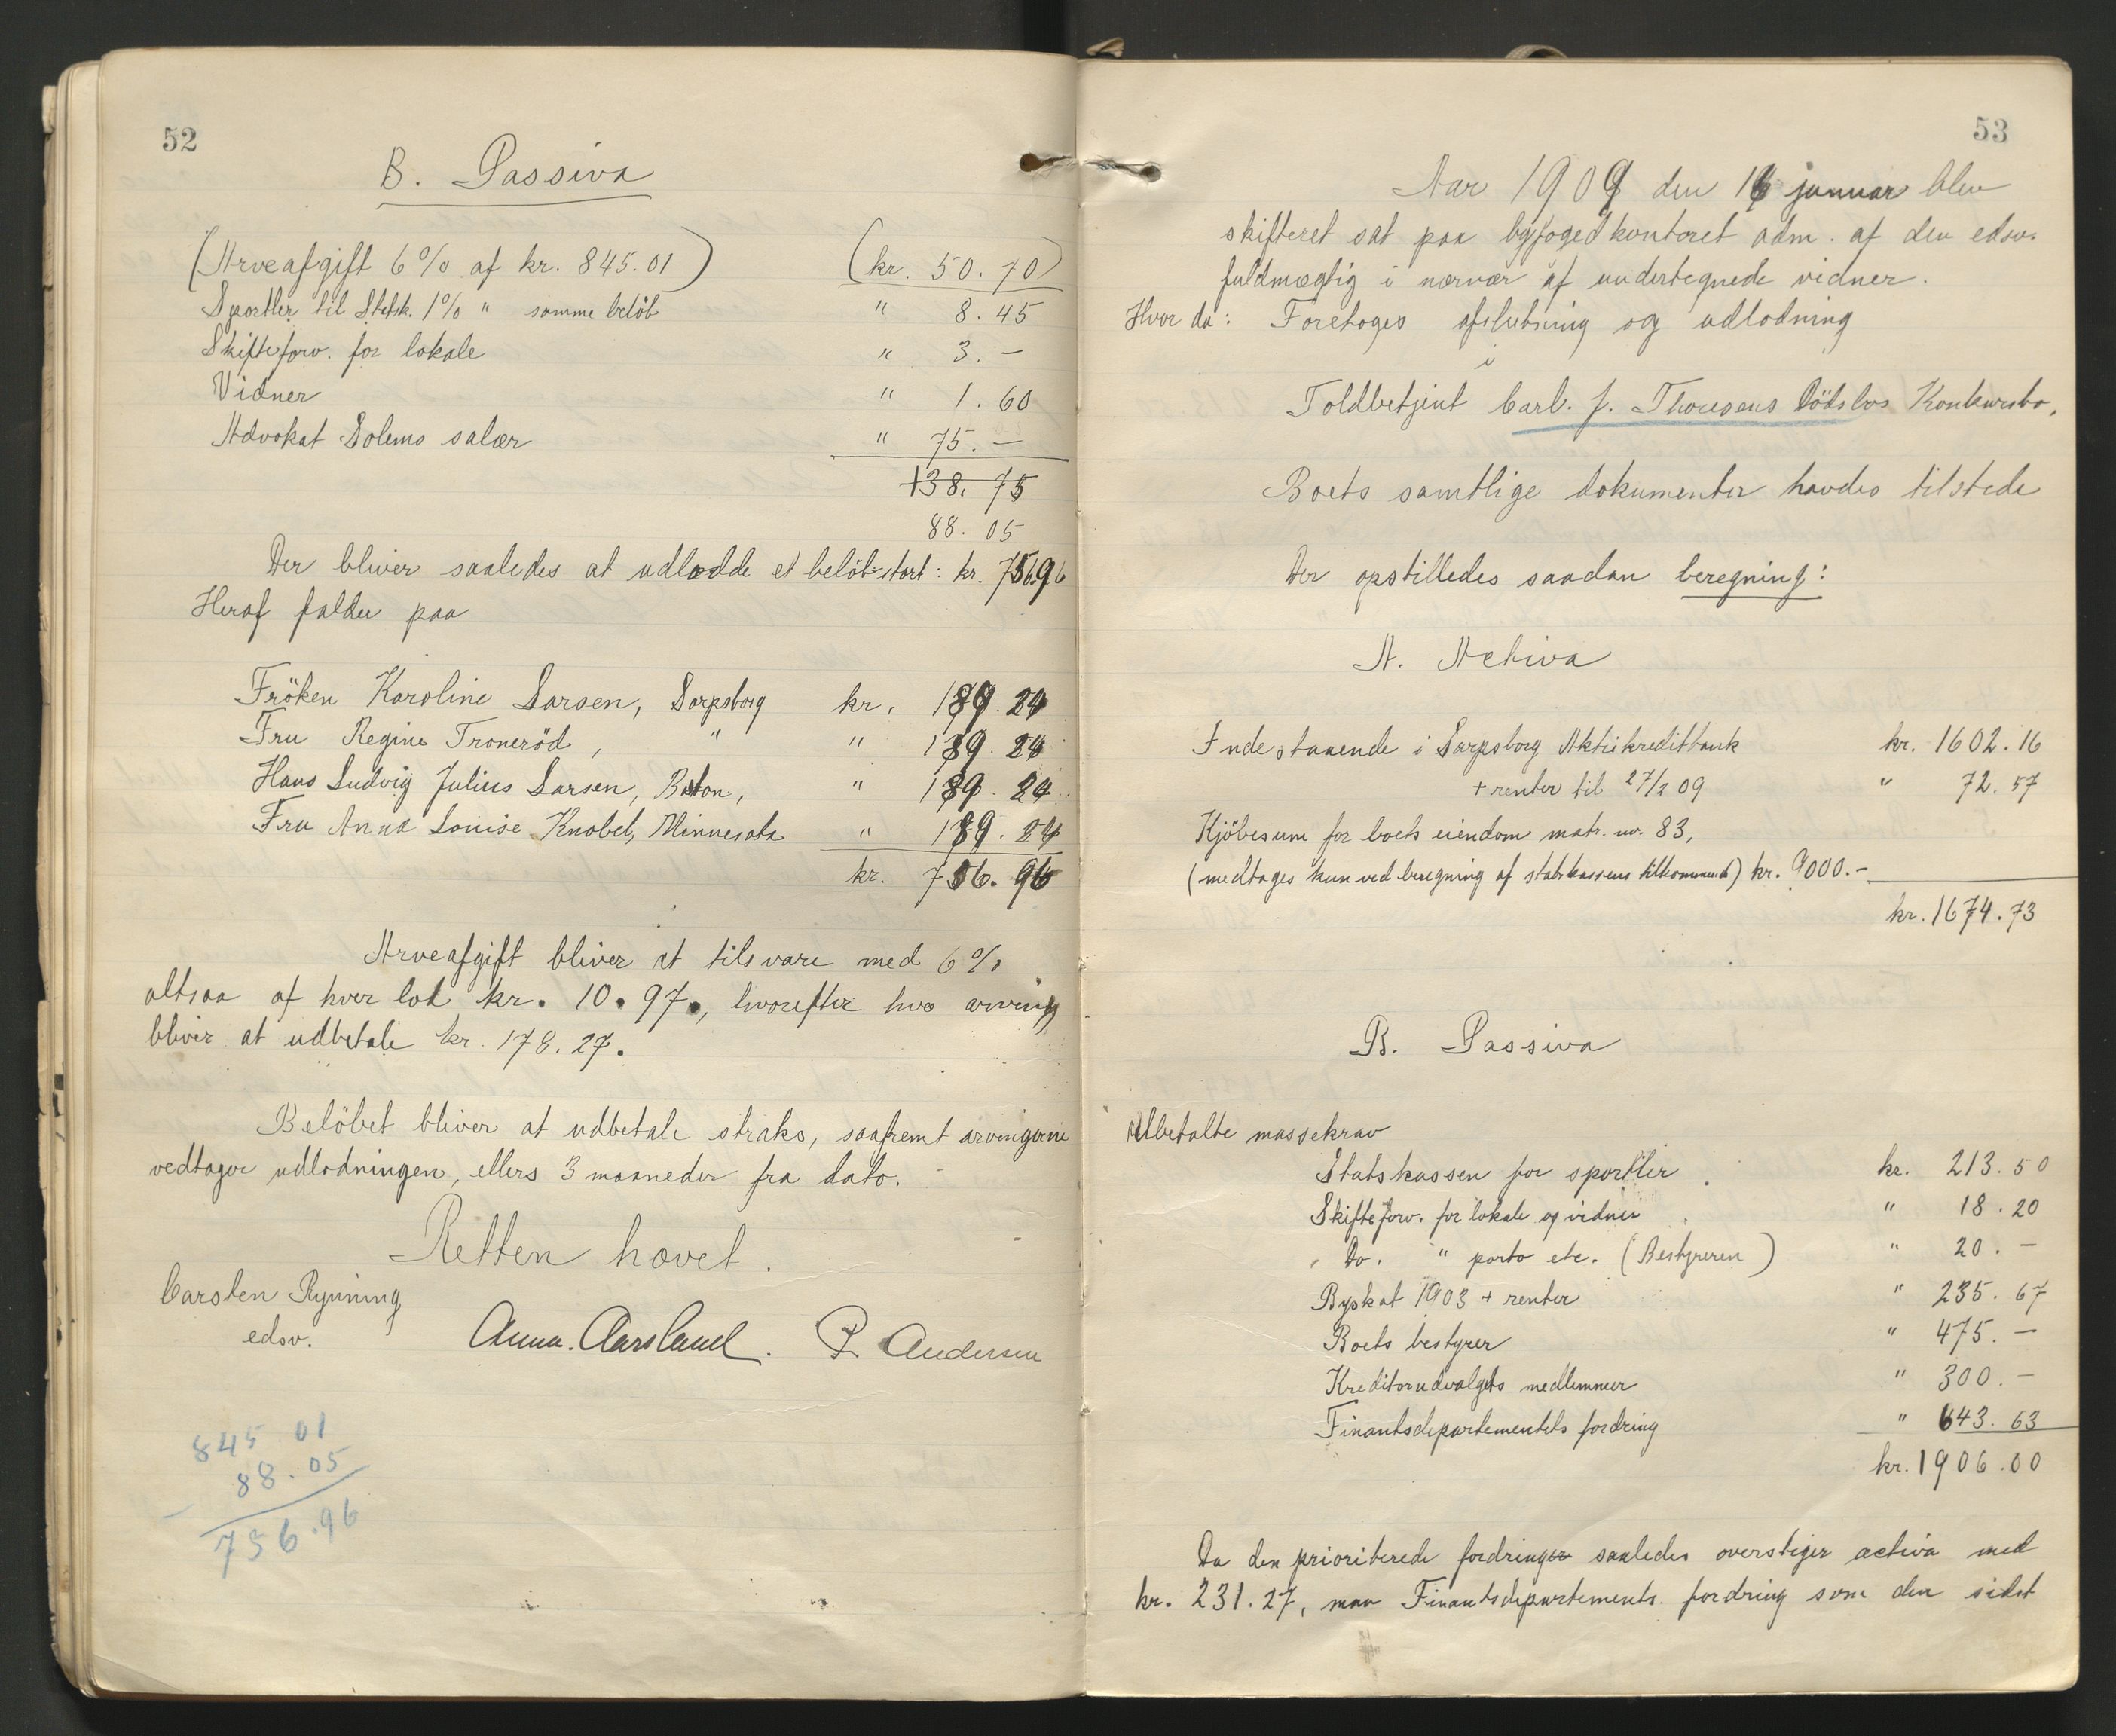 52
B. Passiva
(Arveafgift 6% af kr. 845.01) (kr. 50.70)
Sportler til Statsk. 1% " samme beløb " 8.45
Skifteforv. for lokale " 3.—
Vidner " 1.60
Advokat Solems salær " 75.—
138.75
88.05
Der bliver saaledes at udlodde et beløb stort: kr. 756.96
Heraf falder paa
Fröken Karoline Larsen, Sarpsborg kr. 189.24
Fru Regine Troneröd, " " 189.24
Hans Ludvig Julius Larsen, Boston, " 189.24
Fru Anna Louise Knobel, Minnesota " 189.24
kr. 756.96
Arveafgift bliver at tilsvare med 6%
altsaa af hver lod kr. 10.97, hvorefter hver arving
bliver at udbetale kr. 178.27.
Belöbet bliver at udbetale straks, saafremt arvingerne
vedtager udlodningen, ellers 3 maaneder fra dato.
Retten hævet.
Carsten Rynning
edsv. Anna Aarsland. P. Andersen
845.01
88.05
756.96
53
Aar 1909 den 16 januar blev
skifteret sat paa byfogedkontoret adm. af den edsv.
fuldmægtig i nærvær af undertegnede vidner.
Hvor da: Foretoges afslutning og udlodning
i
Toldbetjent Carl. J. Thoresens Dödsbos Konkursbo.
Boets samtlige dokumenter havdes tilstede
Der opstilledes saadan beregning:
A. Activa
Indestaaende i Sarpsborg Aktiekreditbank kr. 1602.16
+ renter til 27/2 09 " 72.57
Kjöbesum for boets eiendom matr. nr. 83,
(medtages kun ved beregning af statskassens tilkommende) kr. 9000.—
kr. 1674.73
B. Passiva
Ubetalte massekrav
Statskassen for sportler kr. 213.50
Skifteforv. for lokale og vidner " 18.20
" Do. " porto etc. (Bestyreren) " 20.—
Byskat 1903 + renter " 235.67
Boets bestyrer " 475.—
Kreditorudvalgets medlemmer " 300.—
Finantsdepartementets fordring " 643.63
kr. 1906.00
Da den prioriterede fordringer saaledes overstiger activa med
kr. 231.27, maa Finantsdepartements fordring som den sidst